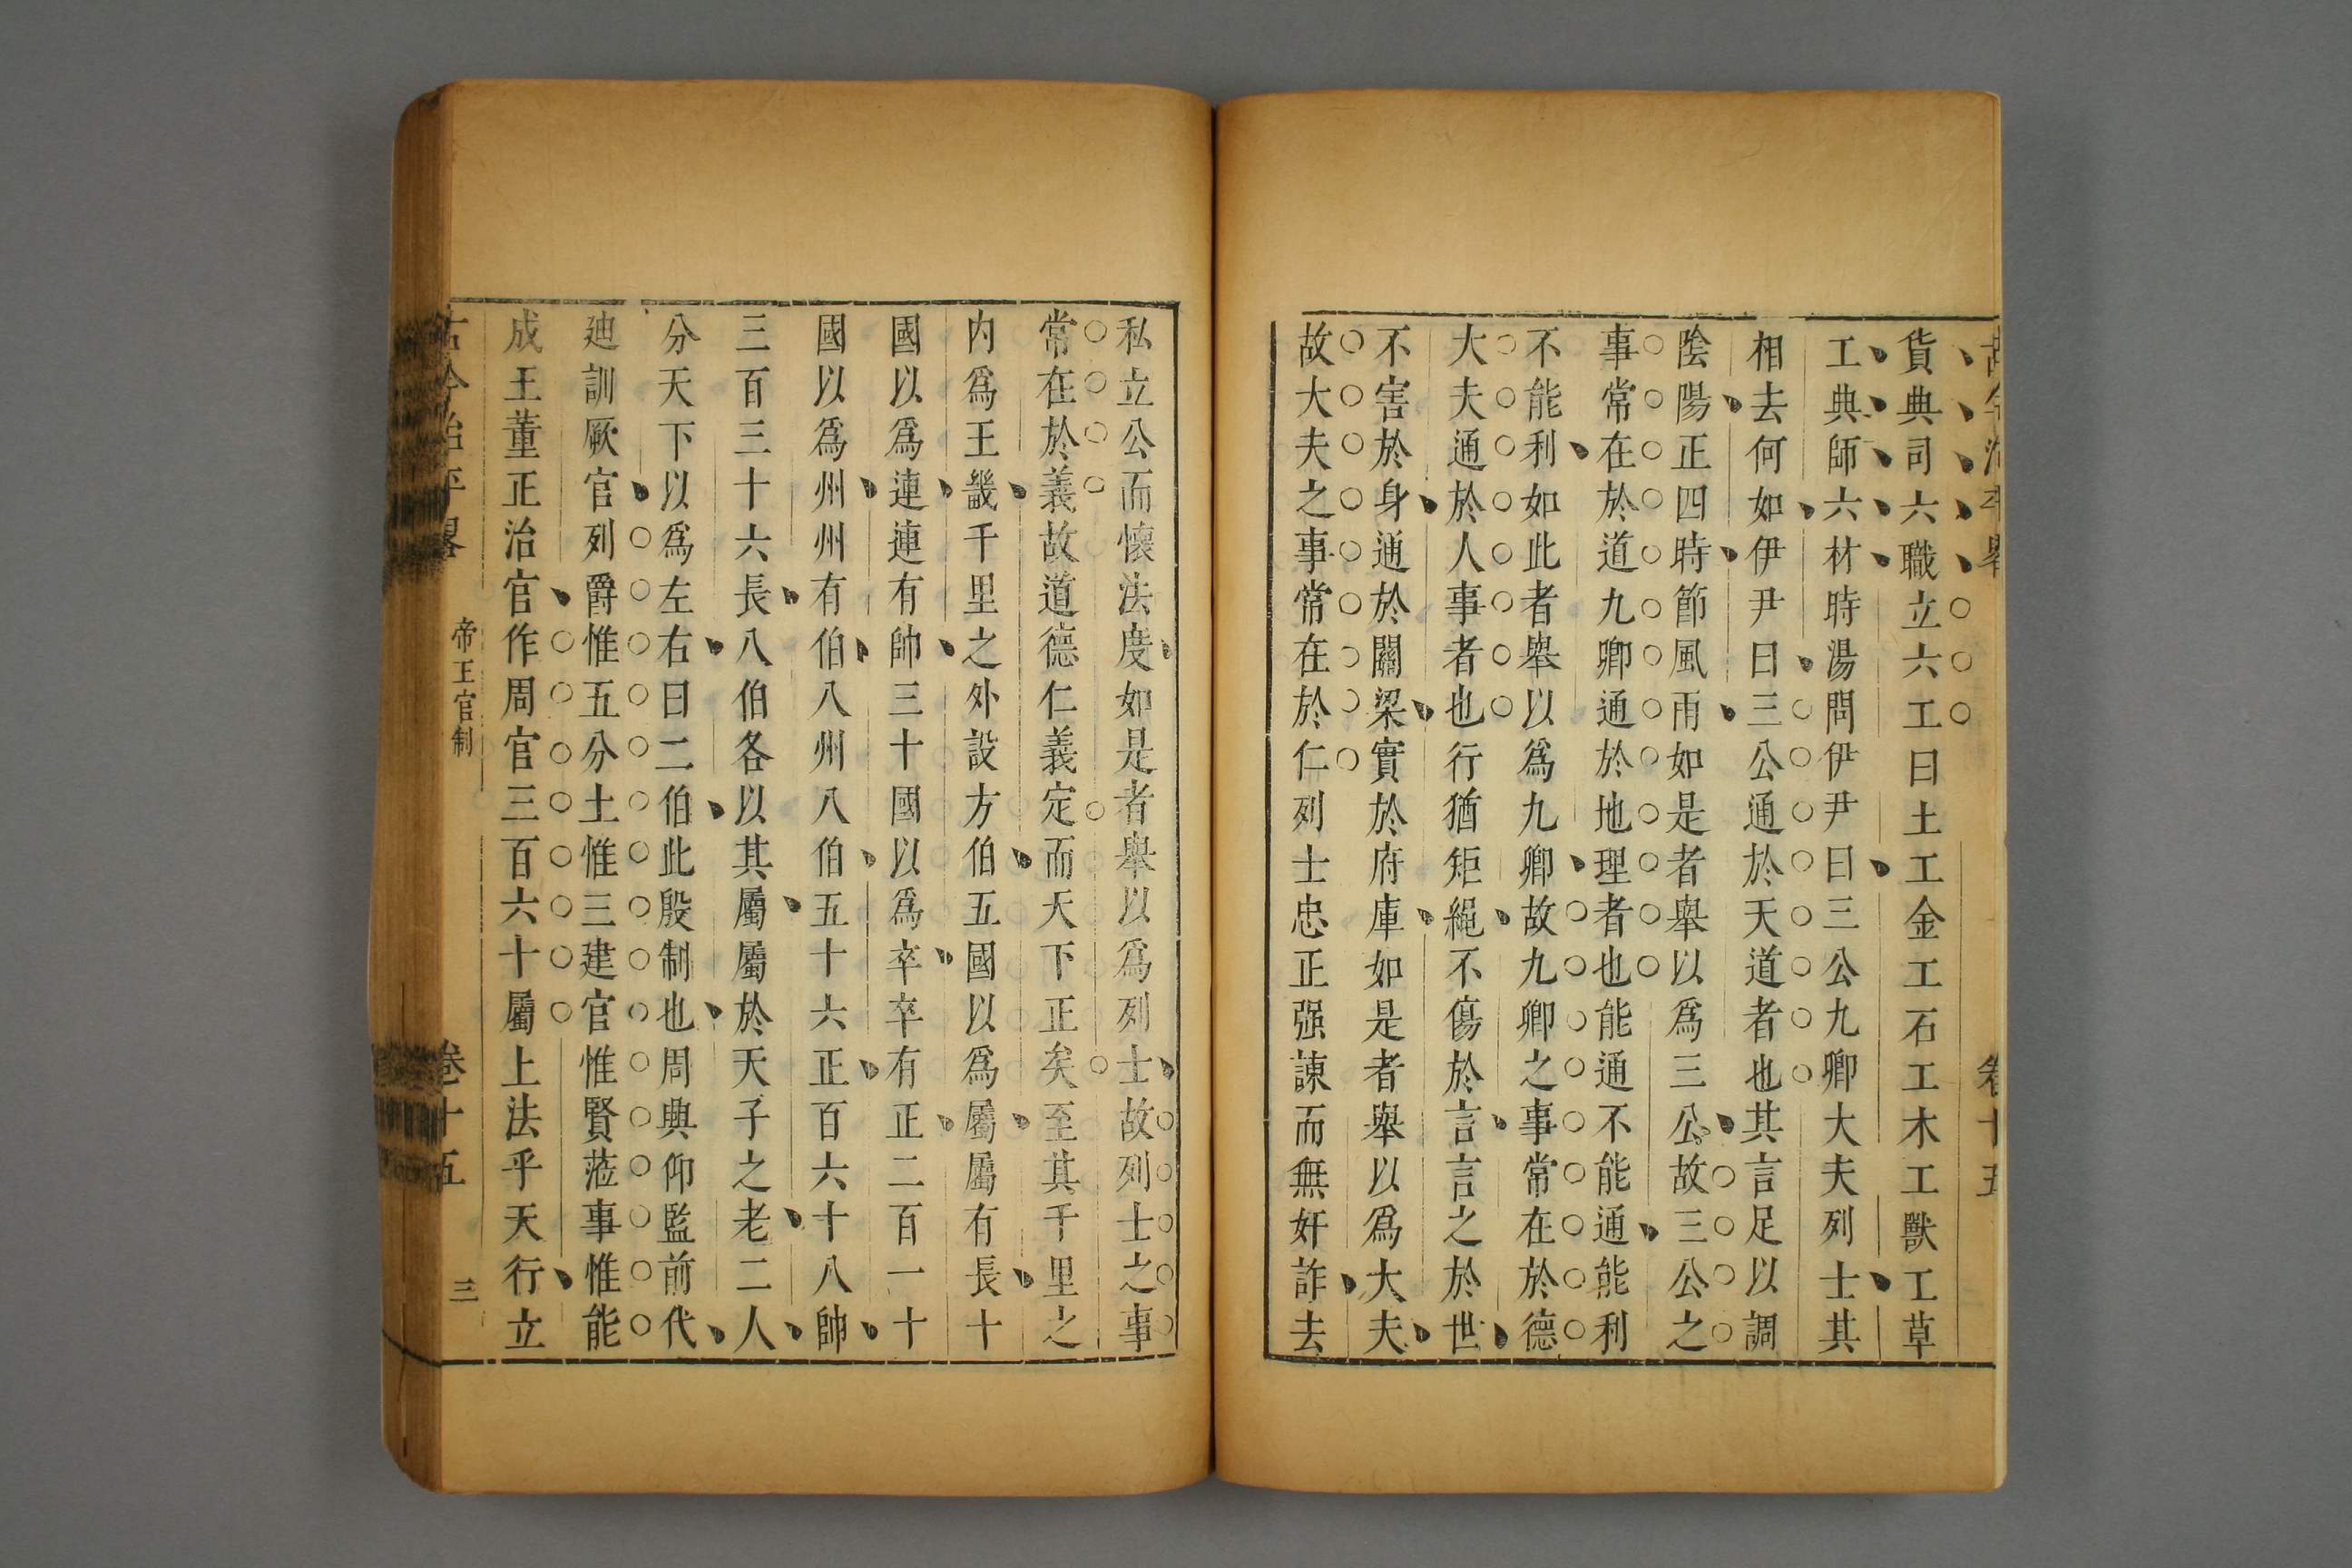 古今治平畧
卷十五
貨典司六職立六工曰土工金工石工木工獸工草
工典師六材時湯問伊尹曰三公九卿大夫列士其
相去何如伊尹曰三公通於天道者也其言足以調
陰陽正四時節風雨如是者舉以為三公故三公之
事常在於道九卿通於地理者也能通不能通能利
不能利如此者舉以為九卿故九卿之事常在於德
大夫通於人事者也行猶矩繩不傷於言言之於世
不害於身通於關梁實於府庫如是者舉以為大夫
故大夫之事常在於仁列士忠正强諫而無奸詐去
私立公而懷法度如是者舉以為列士故列士之事
常在於義故道德仁義定而天下正矣至其千里之
内為王畿千里之外設方伯五國以為屬屬有長十
國以為連連有帥三十國以為卒卒有正二百一十
國以為州州有伯八州八伯五十六正百六十八帥
三百三十六長八伯各以其屬屬於天子之老二人
分天下以為左右曰二伯此殷制也周典仰監前代
廸訓厥官列爵惟五分土惟三建官惟賢蒞事惟能
成王董正治官作周官三百六十屬上法乎天行立
古今治平畧
帝王官制
卷十五
三